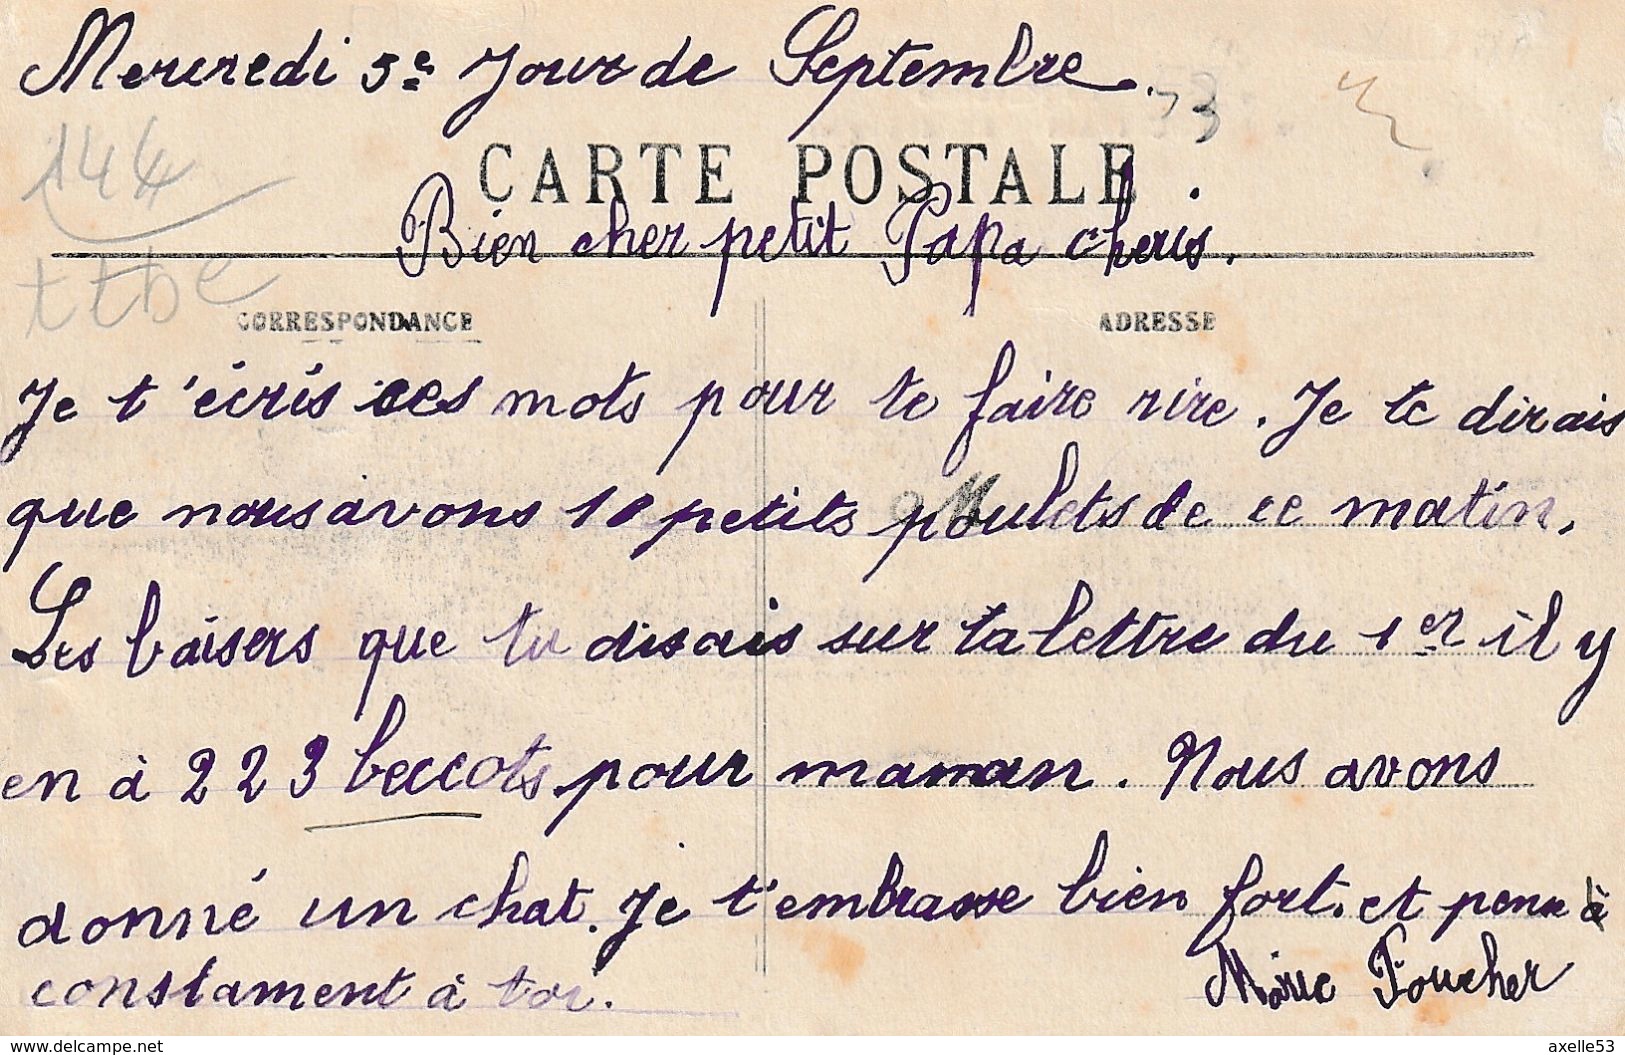 Mercredi 5e Jour de Septembre.
53
144
CARTE POSTALE
Bien cher petit Papa cheris.
ttbe
CORRESPONDANCE
ADRESSE
Je t'écris ces mots pour te faire rire. Je te dirais
que nous avons 10 petits poulets de ce matin.
Les baisers que tu disais sur ta lettre du 1er il y
en à 223 beccots pour maman. Nous avons
donné un chat. Je t'embrasse bien fort. et pense à
constament à toi.
Marie Foucher
www.delcampe.net
axelle53